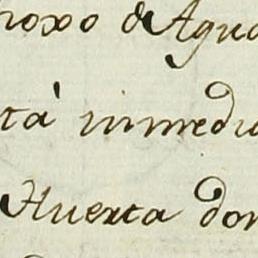 noxo de Agua
tà inmedia
Huerta don